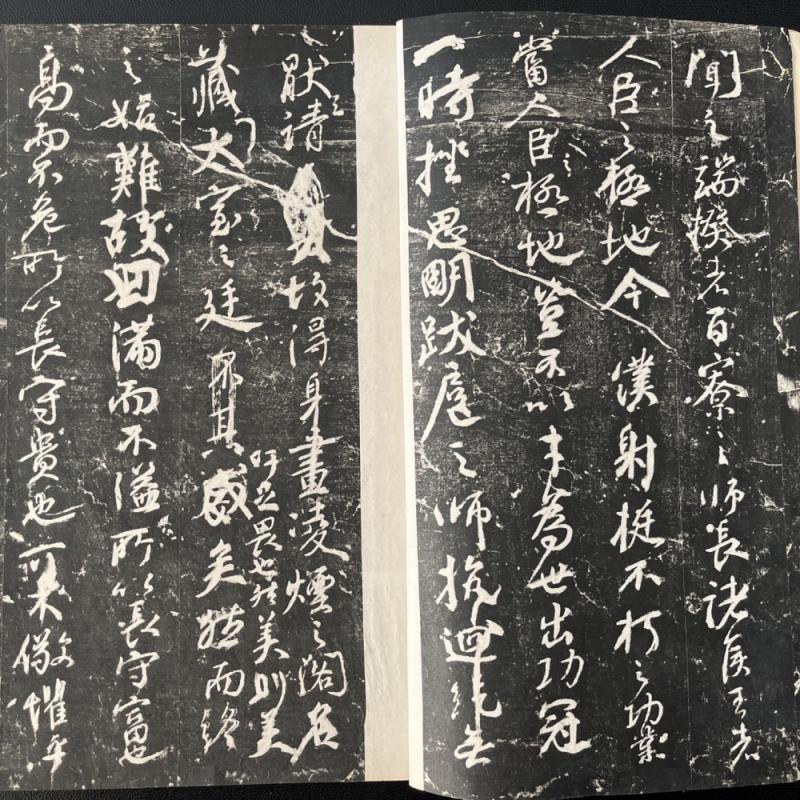 聞之端揆者百寮之師長諸侯王者
人臣之極地今僕射挺不朽之功業
當人臣之極地豈不以才為世出功冠
一時挫思明跋扈之師抗迴紇無
厭之請故得身畫凌煙之閣名
吁足畏也然美則美
藏太室之廷矣然而終
之始難故曰滿而不溢所以長守富也
高而不危所以長守貴也可不儆懼乎